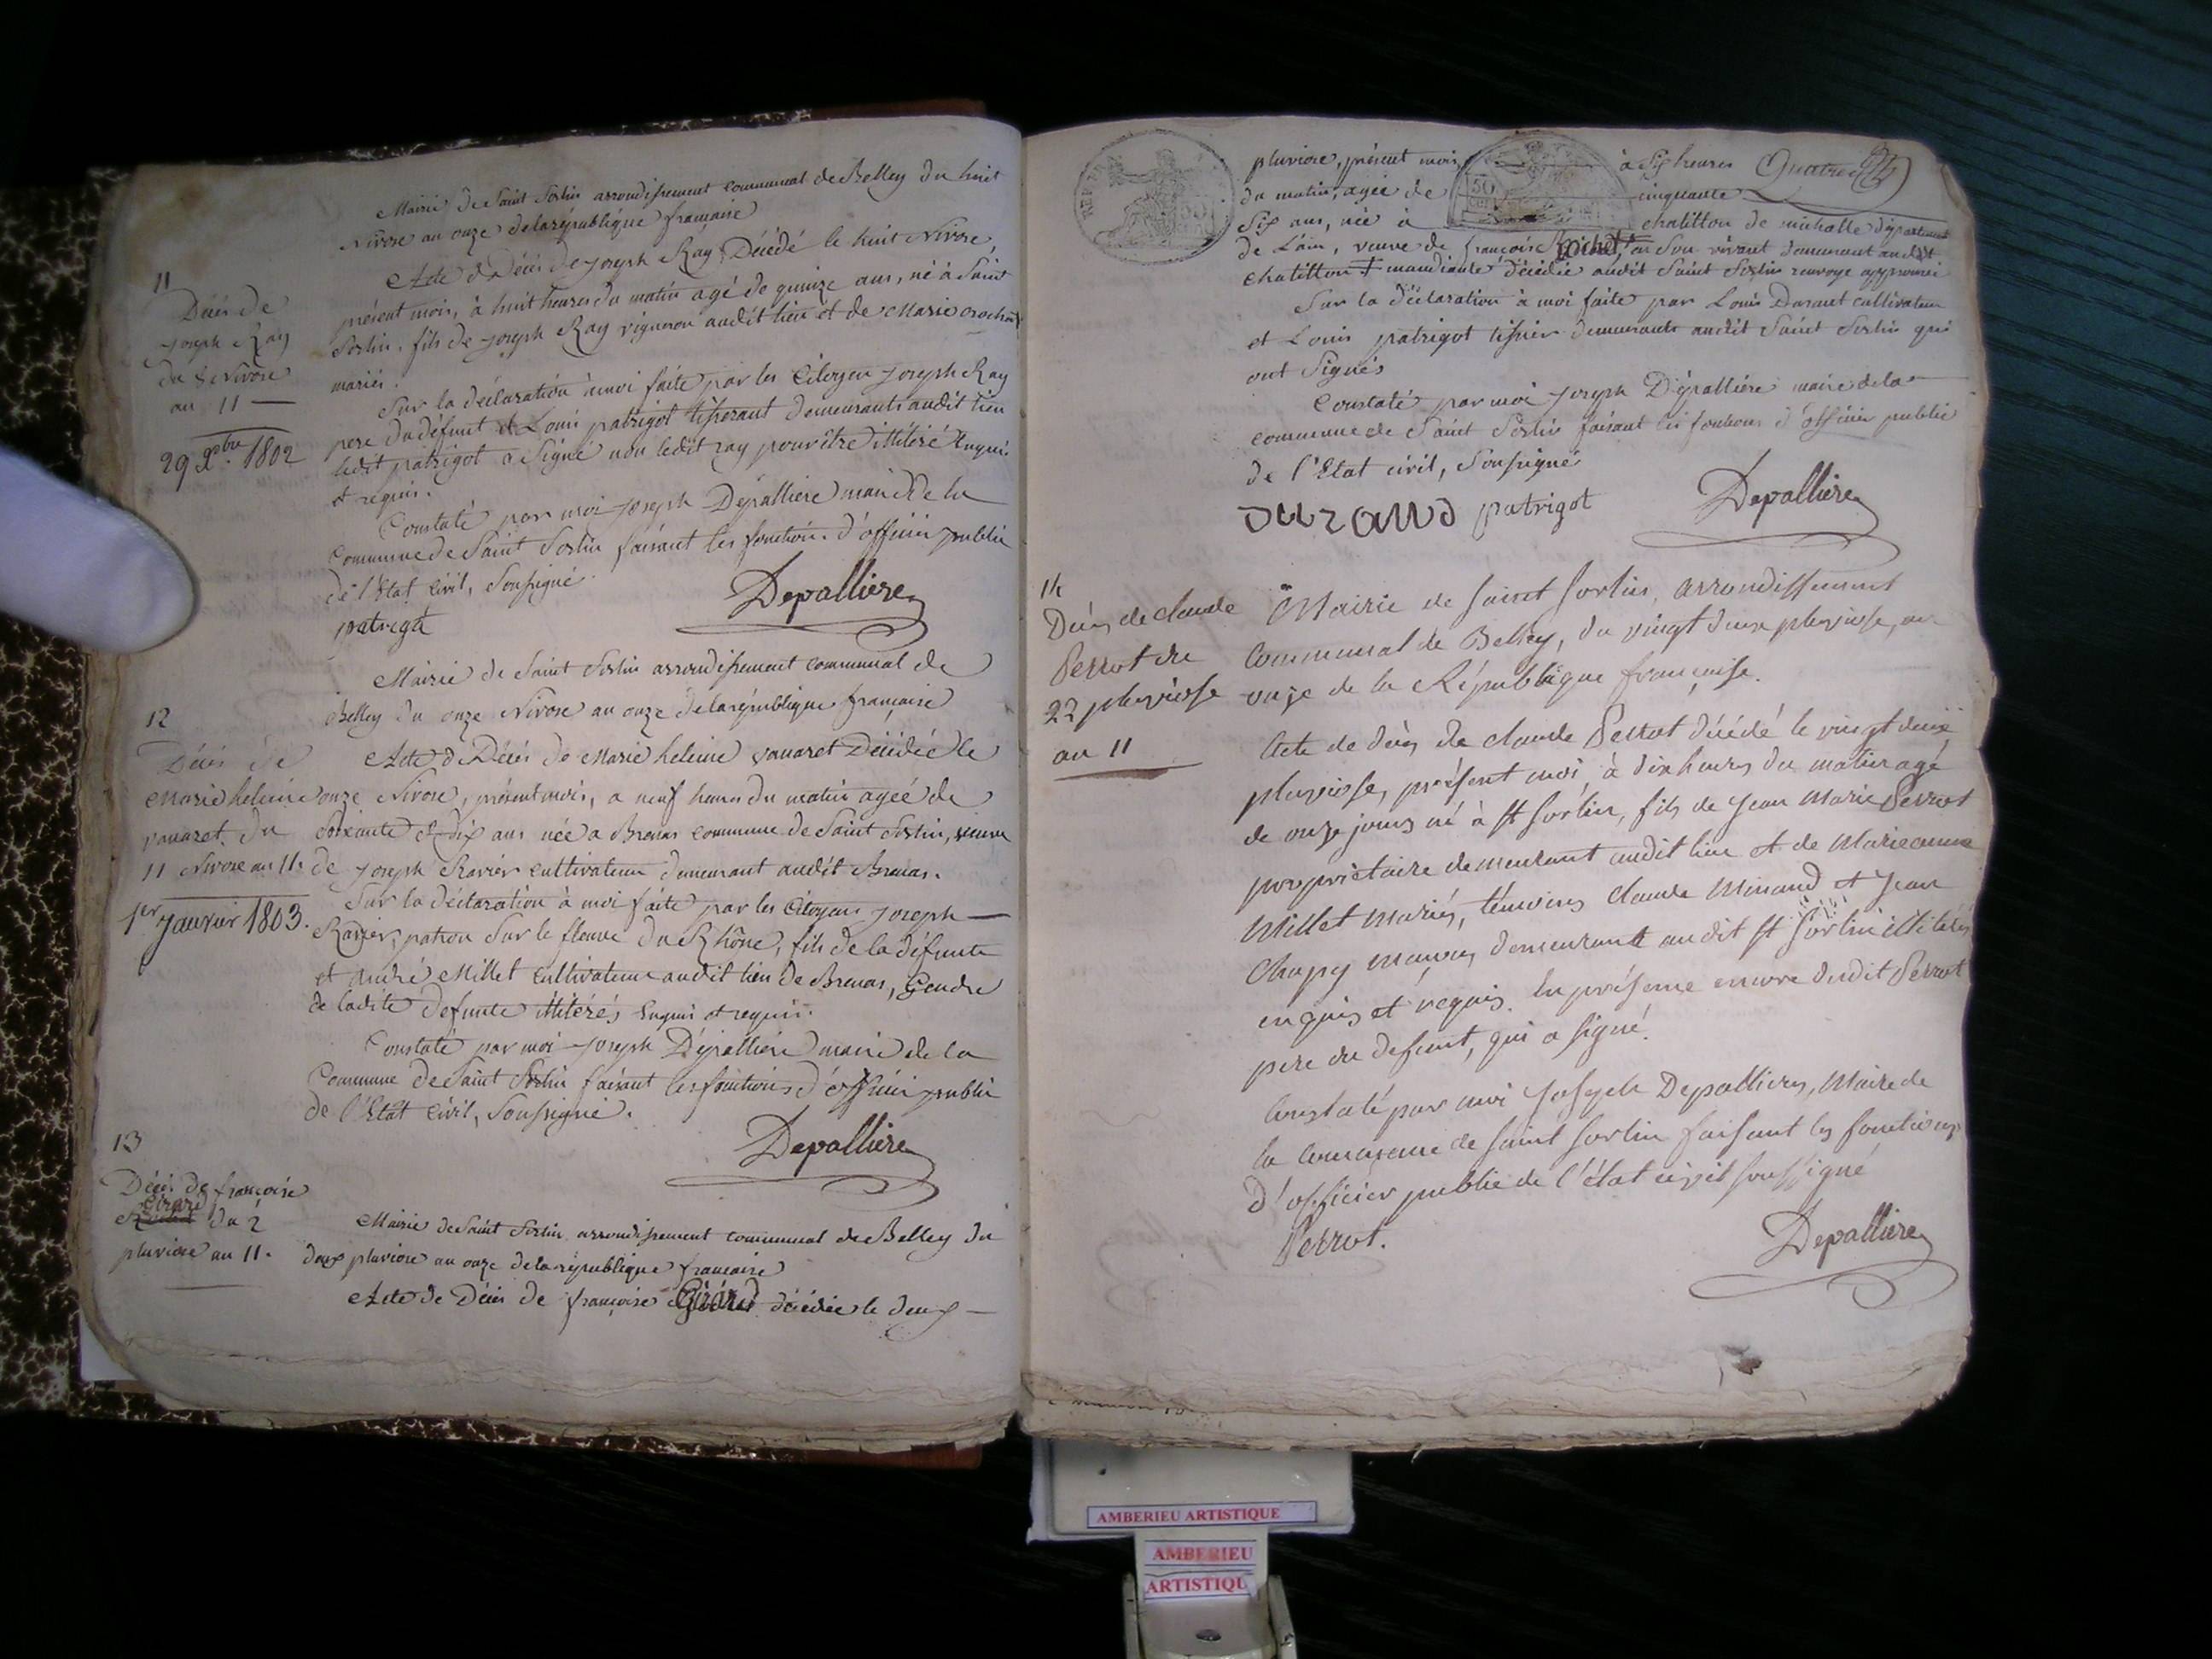 Mairie de Saint Sorlin arrondissement communal de Belley du huit
Nivose an onze de la république française
11
Décès de
joseph Ray
du 8 Nivose
an 11
29 Xbre 1802
Acte de Décès de joseph Ray Décédé le huit Nivose,
présent mois, à huit heures du matin agé de quinze ans, né à Saint
Sorlin, fils de joseph Ray vigneron audit lieu et de Marie
mariés.
Sur la déclaration à moi faite par les Citoyen joseph Ray
pere du défunt et Louis patrigot tisserant demeurants audit lieu
ledit patrigot a Signé non ledit ray pour être illitéré Enquis
et requis.
Constaté par moi joseph Depalliere maire de la
Commune de Saint Sorlin faisant les fonctions d'officier public
de l'Etat Civil, Soussigné.
patrigot
Depalliere
Mairie de Saint Sorlin arrondissement communal de
Belley du onze Nivose an onze de la république française
12
Décès de
Marie heleine
vanaret du
11 Nivose an 11.
1er janvier 1803.
Acte de Décès de Marie heleine vanaret Décédée le
onze Nivose, présent mois, a neuf heures du matin agéé de
Soixante et dix ans née a Brenas commune de Saint Sorlin, veuve
de joseph Ravier cultivateur demeurant audit Brenas.
Sur la déclaration à moi faite par les Citoyens joseph
Ravier, patron Sur le fleuve du Rhône, fils de la défunte
et André Millet cultivateur audit lieu de Brenas, Gendre
de ladite defunte illitérés Enquis et requis.
Constaté par moi joseph Dépalliere maire de la
Commune de Saint Sorlin faisant les fonctions d'officier public
de l'Etat Civil, Soussigné.
Depalliere
13
Décès de françoise
Girard
du 2
pluviose an 11.
Mairie de Saint Sorlin arrondissement communal de Belley du
deux pluviose an onze de la république française
Acte de Décès de françoise Girard décédée le deux
pluviose, présent mois, à Six heures Quatre
du matin, agée de cinquante
Six ans, née à chatillon de michalle département
de L'ain, veuve de françois Rochet, en Son vivant demeurant audit
chatillon mandiante décédée audit Saint Sorlin renvoye approuvé
Sur la déclaration à moi faite par Louis Durant cultivateur
et Louis patrigot tissier demeurants audit Saint Sorlin qui
ont Signés
Constaté par moi joseph Dépalliére maire de la
commune de Saint Sorlin faisant les fonctions d'officier public
de l'Etat civil, Soussigné
DURAND patrigot Depalliere
14
Décès de claude
Perrot du
22 pluviose
an 11
Mairie de saint sorlin, arrondissement
communal de Belley, du vingt deux pluviose, an
onze de la République française.
Acte de décès de claude Perrot décédé le vingt deux
pluviose, présent mois, à dix heures du matin agé
de onze jours né à St sorlin, fils de jean Marie Perrot
propriétaire demeurant audit lieu et de Marieanne
Millet mariés, témoins claude Minand et jean
Chapuy maçons demeurant audit St sorlin illitérés
enquis et requis. En présence encore dudit Perrot
pere du defunt, qui a signé.
Constaté par moi joseph Depalliere, Maire de
la Commune de saint sorlin faisant les fonctions
d'officier public de l'état civil soussigné
Perrot.
Depalliere
AMBERIEU ARTISTIQUE
AMBERIEU
ARTISTIQU